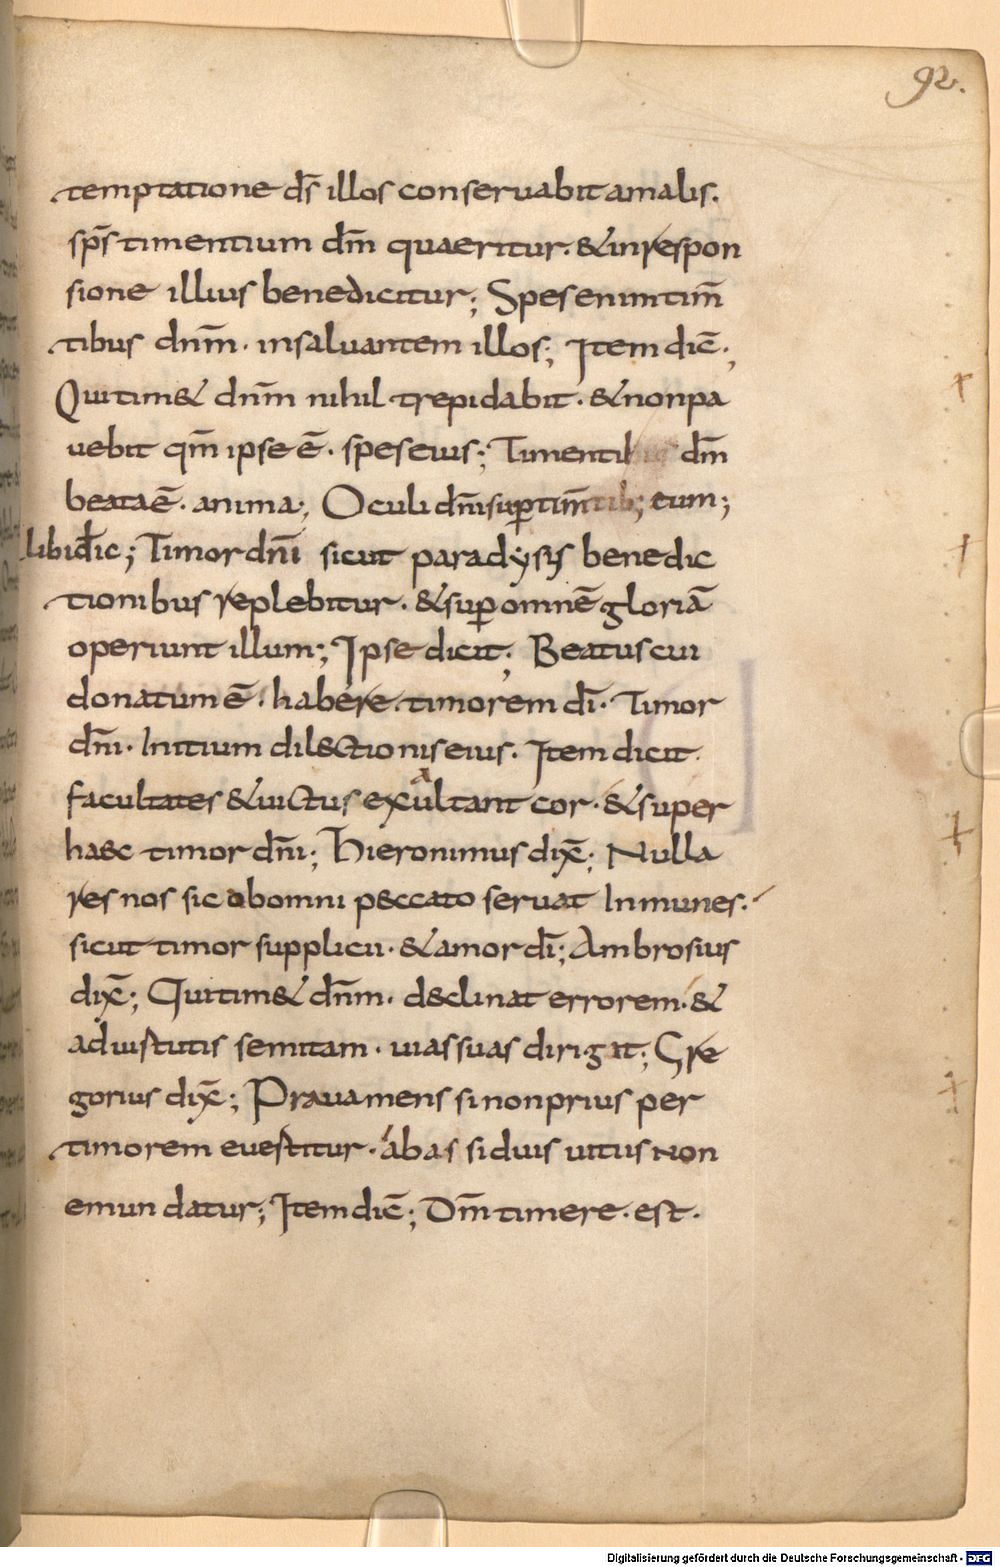 92.
temptatione d̄s illos conseruabit amalis.
sp̄s timentium dm̄ quaeritur. & inrespon
sione illius benedicitur; Spes enim tim̄
tibus dnm̄. insaluantem illos; Item dic̄;
Qui tim& dnm̄ nihil trepidabit. & nonpa
uebit qm̄ ipse ē. spes eius; Timentibus dm̄
beata ē. anima; Oculi dn̄i sup tim̄tib; eum;
libi dic; Timor dn̄i sicut paradysis benedic
tionibus replebitur. & sup omnē gloriā
operiunt illum; Ipse dicit; Beatus cui
donatum ē. habere timorem dī. Timor
dn̄i. Initium dil&ctionis eius. Item dicit.
facultates & uictus exaultant cor. & super
haec timor dn̄i; Hieronimus dix̄; Nulla
res nos sic abomni peccato seruat Inmunes.
sicut timor supplicii. & amor dī; Ambrosius
dix̄; Qui tim& dn̄m. declinat errorem. &
aduistutis semitam. uias suas dirigit; Gre
gorius dix̄; Praua mens si non prius per
timorem euestitur. abas siduis uitiis non
emundatur; Item dic̄; Dm̄ timere. est.
Digitalisierung gefördert durch die Deutsche Forschungsgemeinschaft - DFG